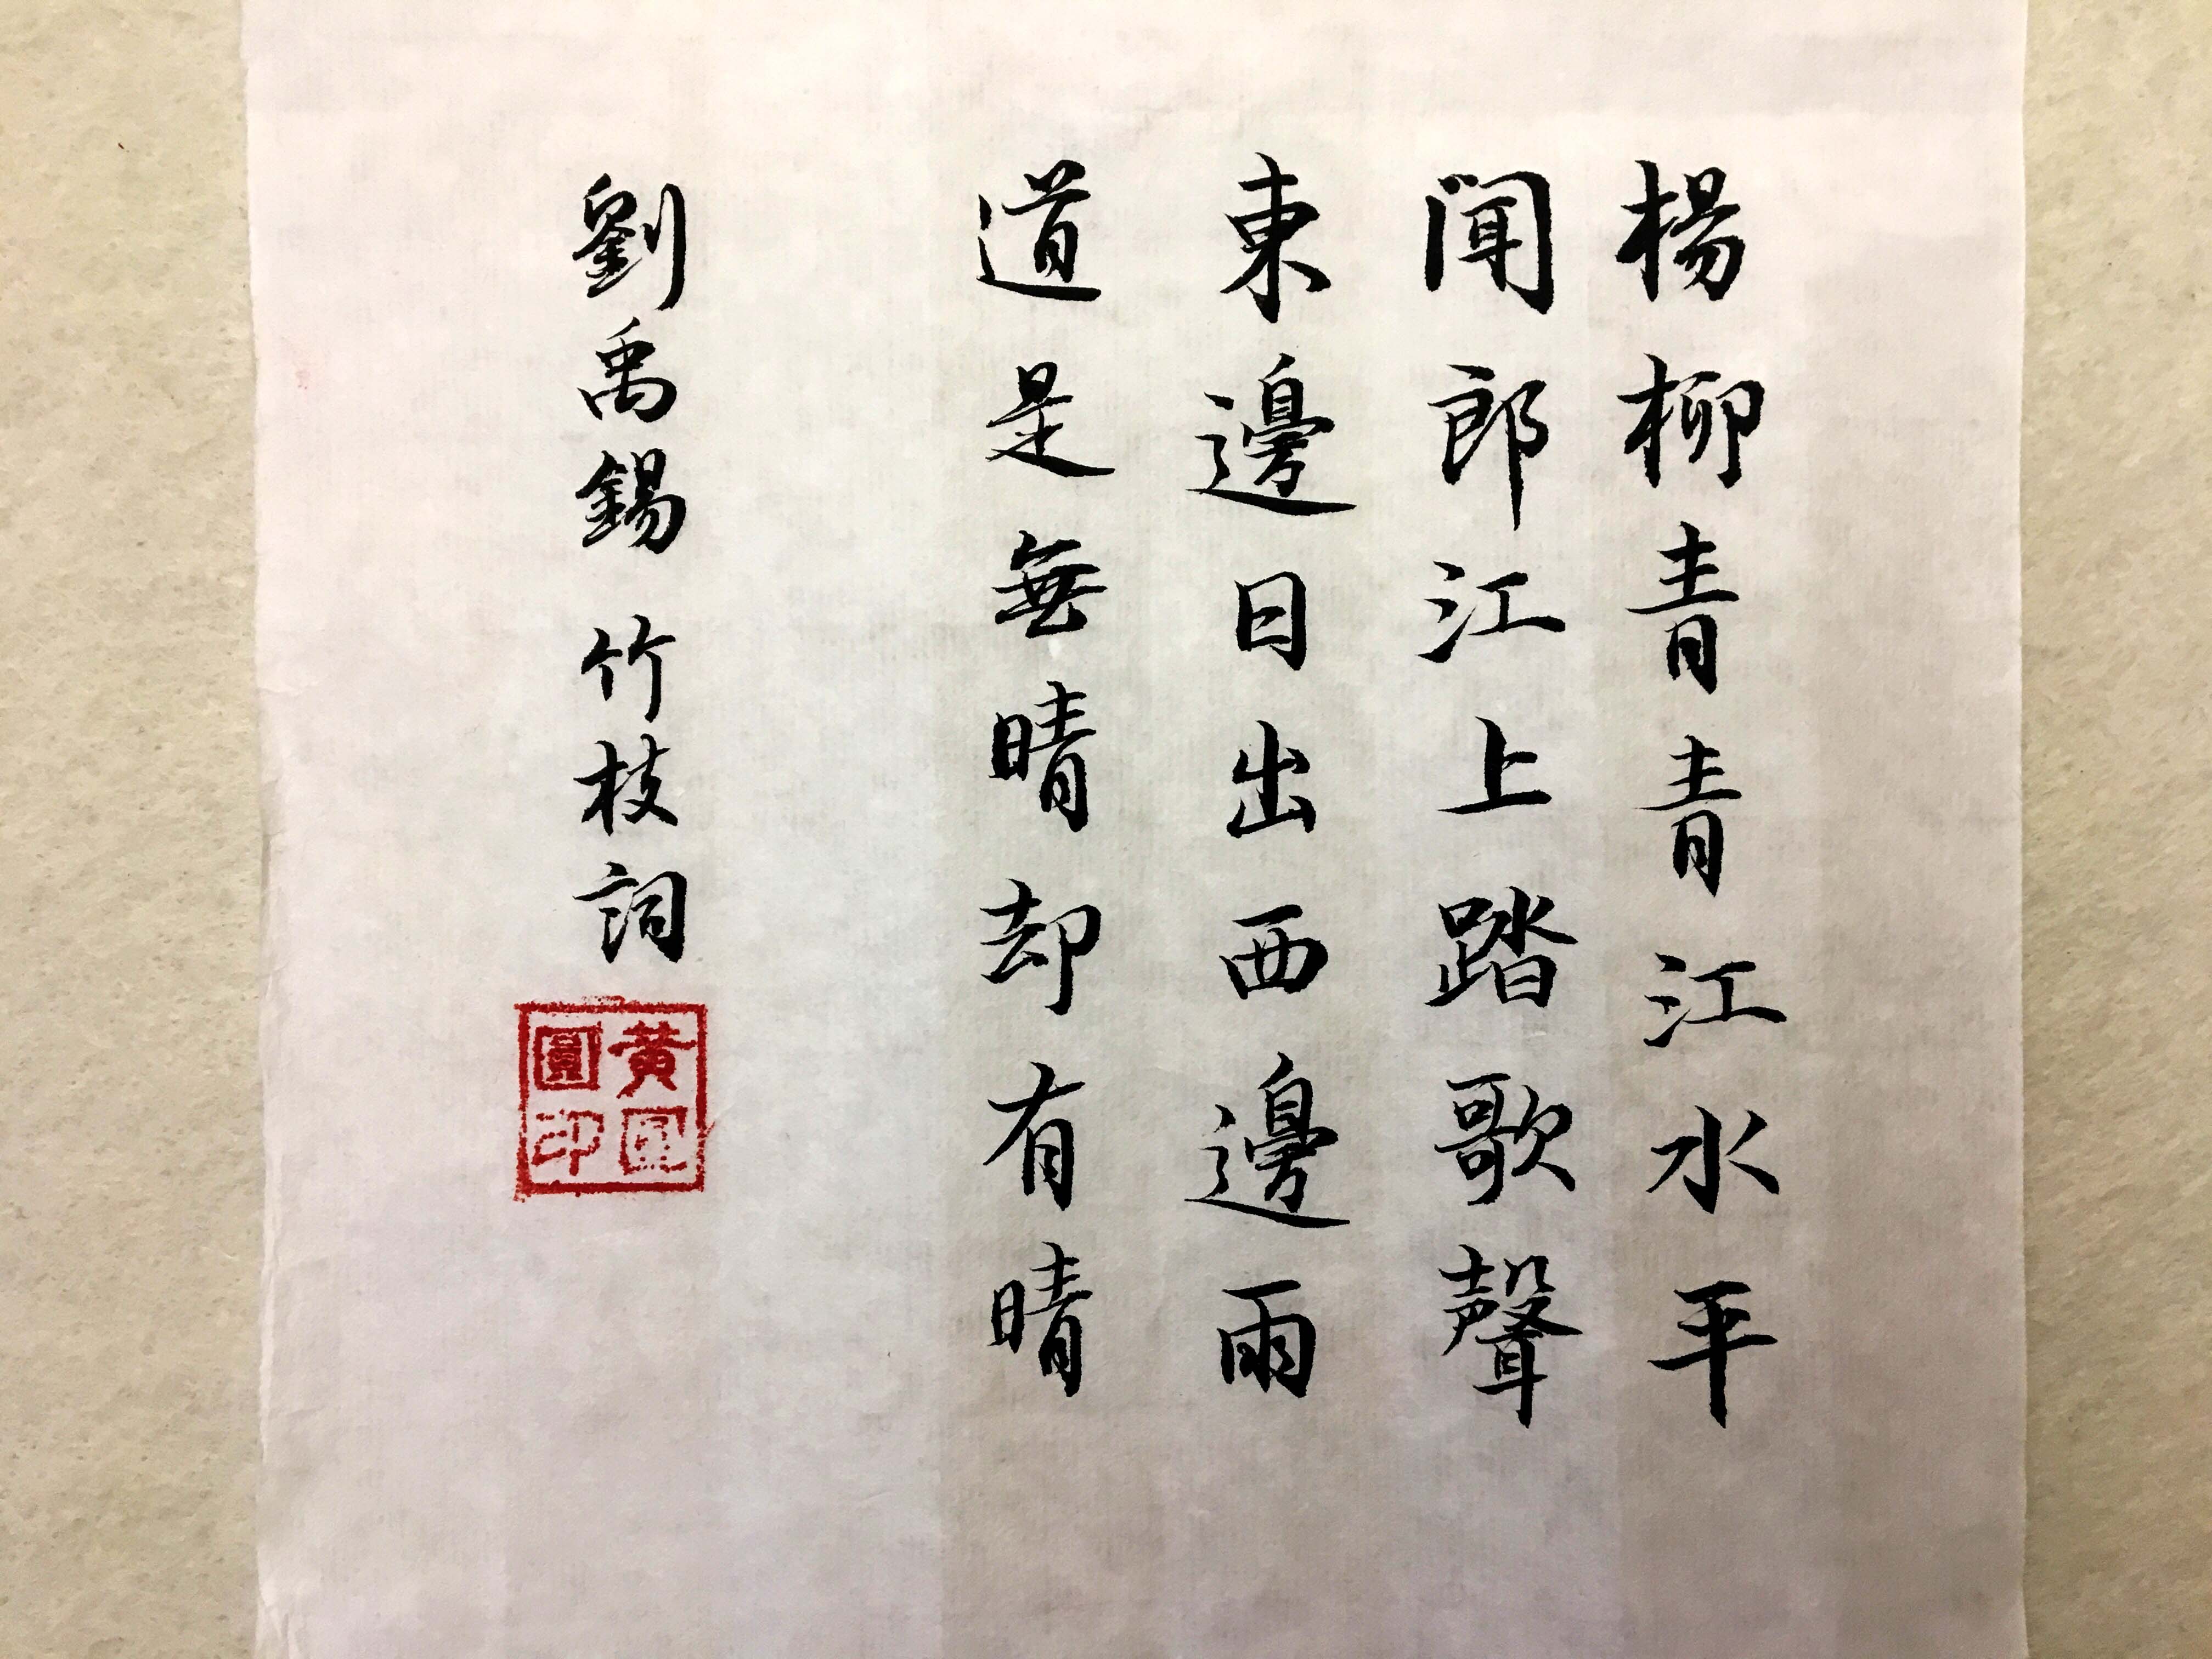 楊柳青青江水平
聞郎江上踏歌聲
東邊日出西邊雨
道是無晴却有晴
劉禹錫 竹枝詞
黄圓圓印